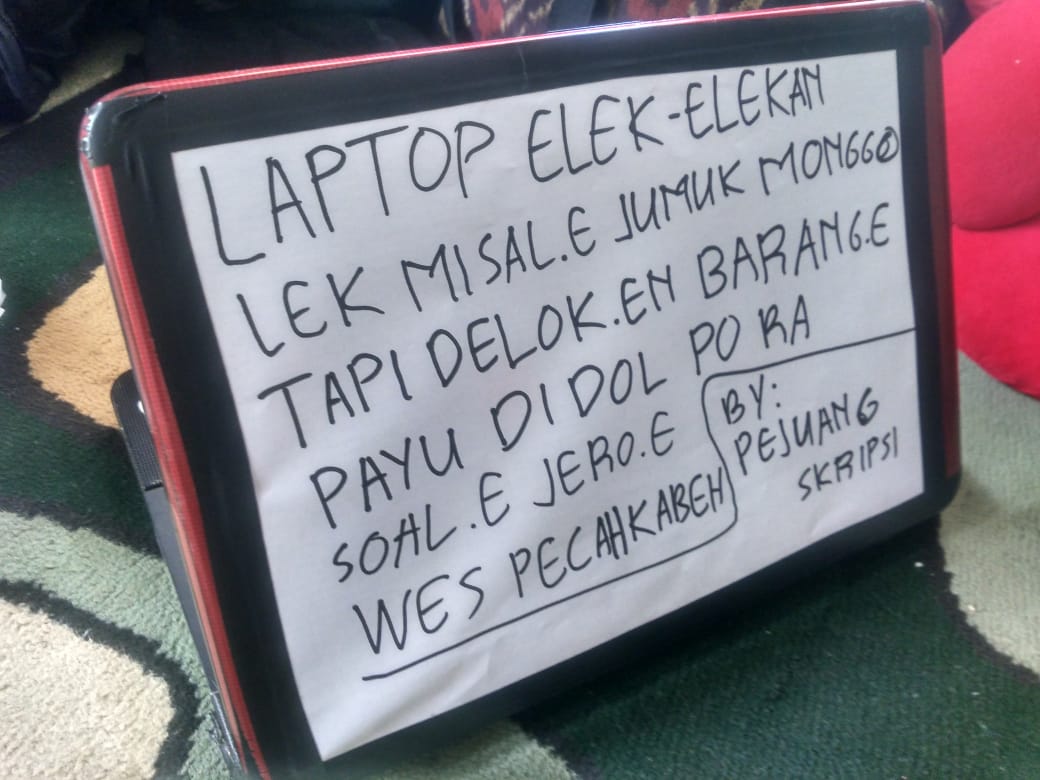 LAPTOP ELEK-ELEKAN
LEK MISAL.E JUMUK MONGGO
TAPI DELOK.EN BARANG.E
PAYU DI DOL PO RA
SOAL.E JERO.E
WES PECAH KABEH
BY:
PEJUANG
SKRIPSI